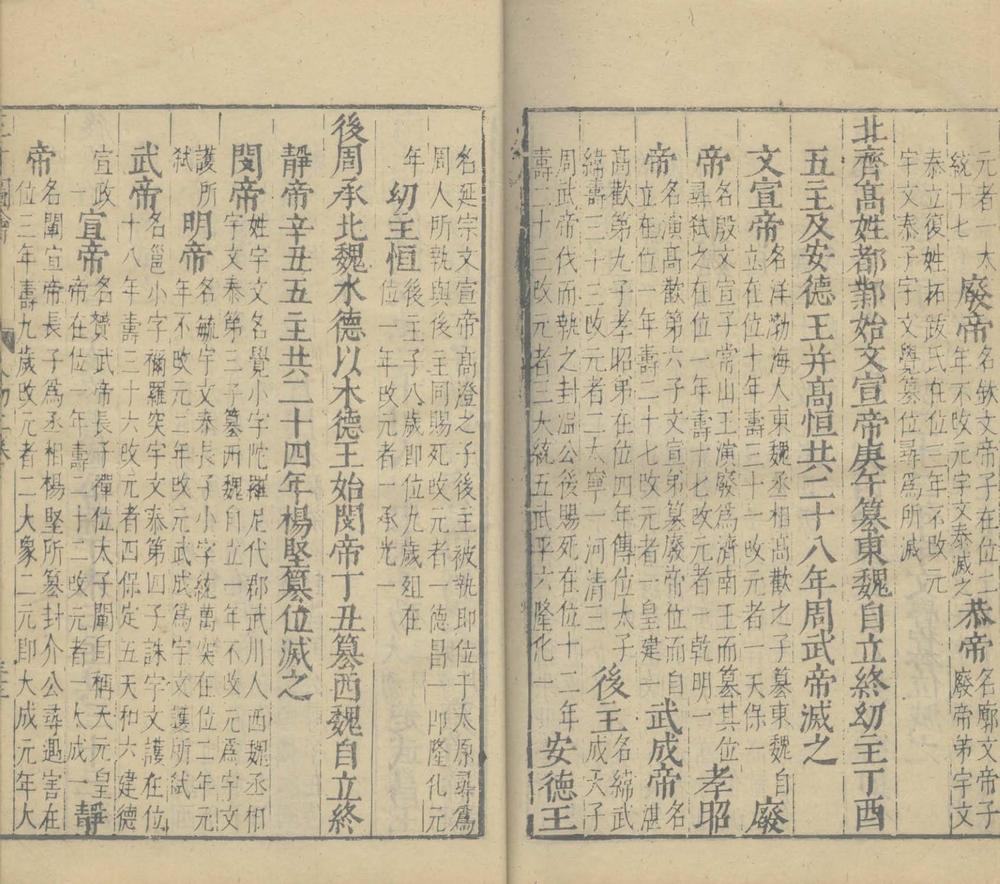 元者一大統十七廢帝名欽文帝子在位二年不改元宇文泰滅之恭帝名廓文帝子廢帝弟宇文
泰立復姓拓跋氏在位三年不改元宇文泰子宇文覺簒位尋爲所滅
北齊髙姓都鄴始文宣帝庚午簒東魏自立終幼主丁酉
五主及安德王并髙恒共二十八年周武帝滅之
文宣帝名洋渤海人東魏丞相髙歡之子簒東魏自立在位十年壽三十一改元者一天保一廢
帝名殷文宣子常山王演廢爲濟南王而簒其位尋弒之在位一年壽十七改元者一乾明一孝昭
帝名演髙歡第六子文宣弟簒廢帝位而自立在位一年壽二十七改元者一皇建一武成帝名湛
髙歡第九子孝昭弟在位四年傳位太子緯壽三十三改元者二太寧一河清三後主名緯武成天子
周武帝伐而執之封溫公後賜死在位十二年壽二十三改元者三大統五武平六隆化一安德王
名延宗文宣帝髙澄之子後主被執即位于太原尋爲周人所執與後主同賜死改元者一德昌一即隆化元
年幼主恒後主子八歲即位九歲殂在位一年改元者一承光一
後周承北魏水德以木德王始閔帝丁丑簒西魏自立終
靜帝辛丑五主共二十四年楊堅簒位滅之
閔帝姓宇文名覺小字陀羅尼代郡武川人西魏丞相宇文泰第三子簒西魏自立一年不改元爲宇文
護所弒明帝名毓宇文泰長子小字統萬突在位二年元年不改元二年改元武成爲宇文護所弒
武帝名邕小字禰羅突宇文泰第四子誅宇文護在位十八年壽三十六改元者四保定五天和六建德
宣政一宣帝名贇武帝長子禪位太子闡自稱天元皇帝在位一年壽二十二改元者一大成一靜
帝名闡宣帝長子爲丞相楊堅所簒封介公尋遇害在位三年壽九歲改元者二大象二元即大成元年大